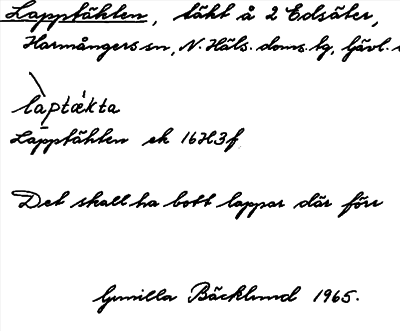 Lapptäkten, täkt å 2 Edsäter,
Harmångers sn, N. Häls. doms. tg, Gävl.
làptæ̀kta
Lapptäkten ek 16H3f
Det skall ha bott lappar där förr
Gunilla Bäcklund 1965.